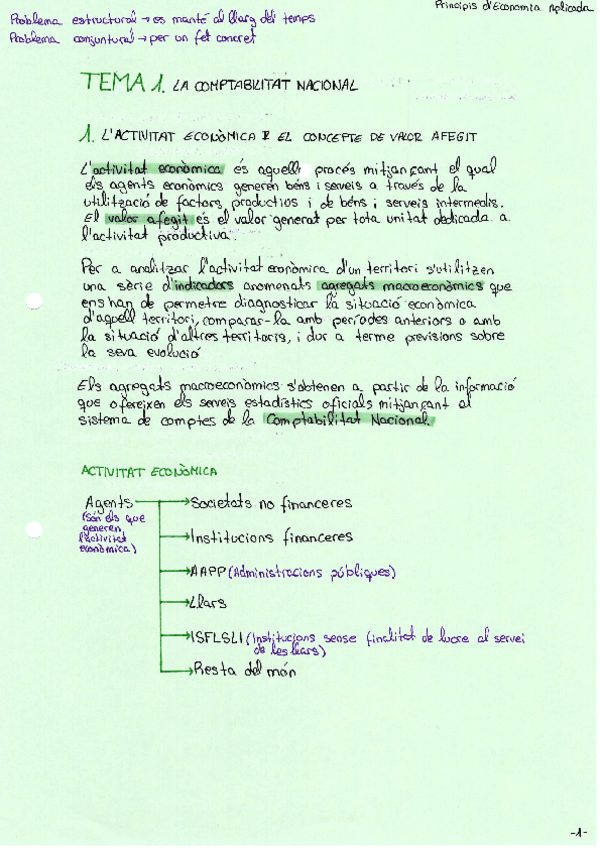 Principis d'Economia Aplicada
Problema estructural → es manté al llarg del temps
Problema conjuntural → per un fet concret
TEMA 1. LA COMPTABILITAT NACIONAL
1. L'ACTIVITAT ECONÒMICA I EL CONCEPTE DE VALOR AFEGIT
L'activitat econòmica és aquell procés mitjançant el qual
els agents econòmics generen béns i serveis a través de la
utilització de factors productius i de béns i serveis intermedis.
El valor afegit és el valor generat per tota unitat dedicada a
l'activitat productiva.
Per a analitzar l'activitat econòmica d'un territori s'utilitzen
una sèrie d'indicadors anomenats agregats macroeconòmics que
ens han de permetre diagnosticar la situació econòmica
d'aquell territori, comparar-la amb períodes anteriors o amb
la situació d'altres territoris, i dur a terme previsions sobre
la seva evolució
Els agregats macroeconòmics s'obtenen a partir de la informació
que ofereixen els serveis estadístics oficials mitjançant el
sistema de comptes de la Comptabilitat Nacional.
ACTIVITAT ECONÒMICA
Agents → Societats no financeres
(Són els que
generen
l'activitat
econòmica)
→ Institucions financeres
→ AAPP (Administracions públiques)
→ Llars
→ ISFLSLl (Institucions sense finalitat de lucre al servei
de les llars)
→ Resta del món
-1-